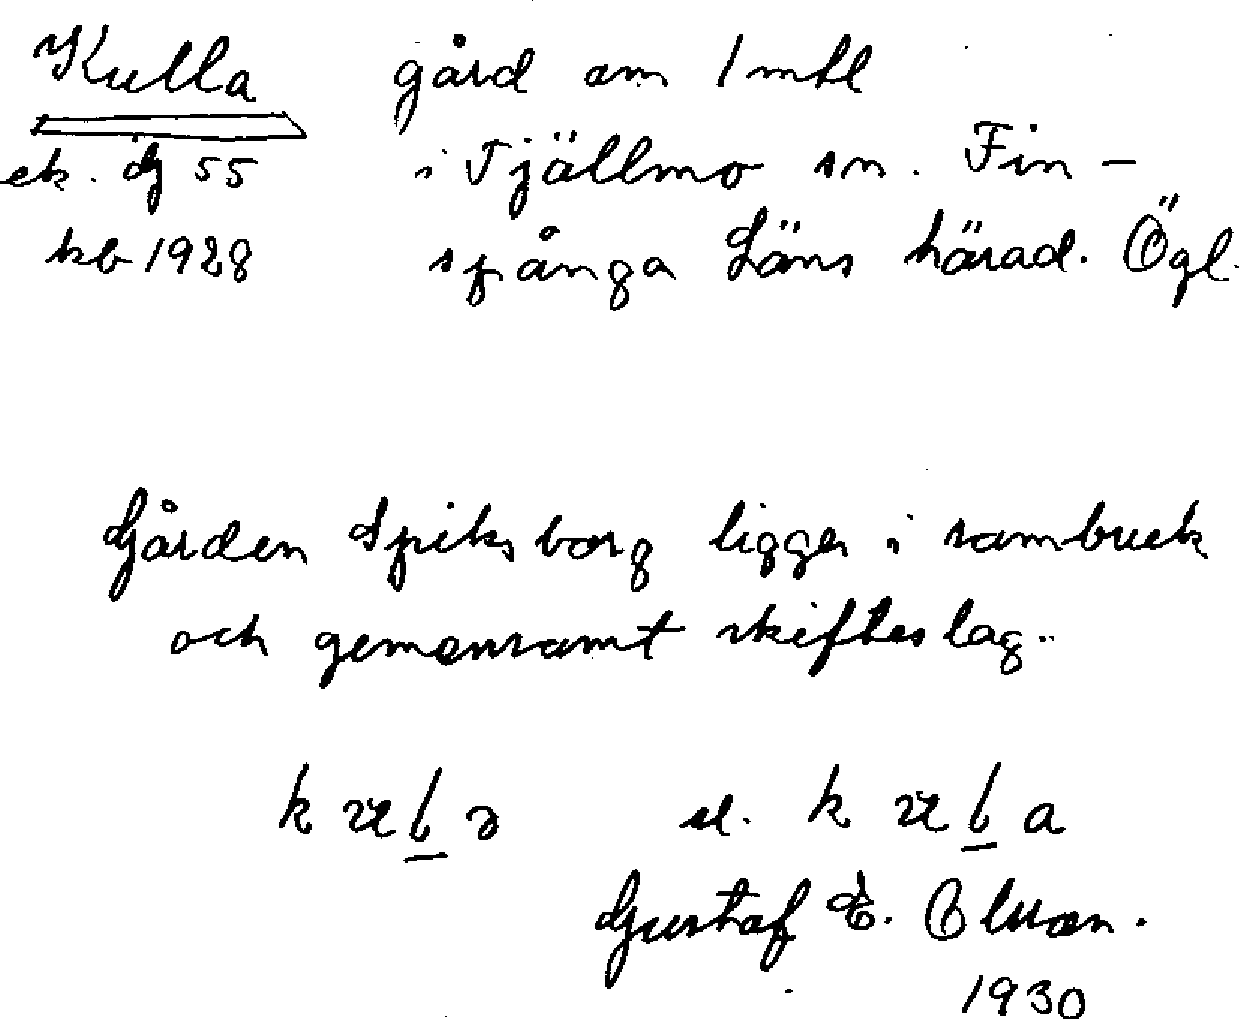 Kulla gård om 1 mtl
ek. dj 55 i Tjällmo sn. Fin-
kb 1928 spånga Läns härad. Ögl.
Gården Spiksborg ligger i sambruk
och gemensamt skifteslag.
k a el. k a
Gustaf E. Olsson.
1930